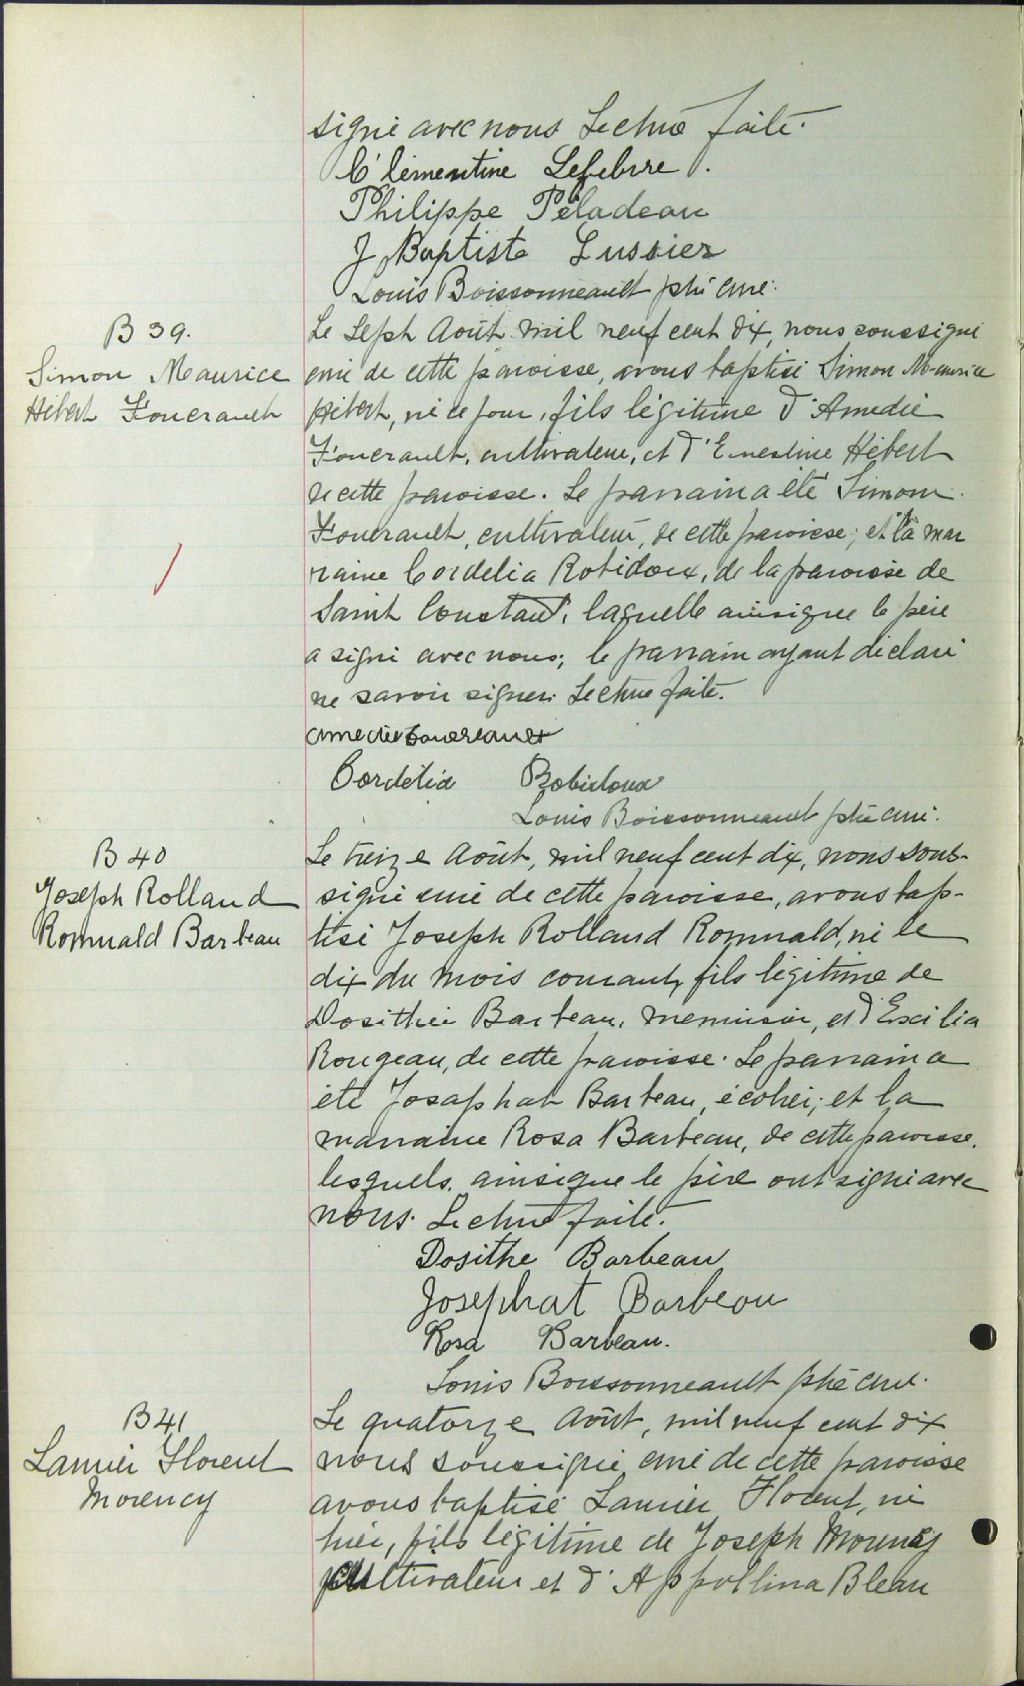 signé avec nous Lecture faite.
Clémentine Lefebvre.
Philippe Péladeau
J Baptiste Lussier
Louis Boissonneault ptre curé.
B 39.
Simon Maurice
Hébert Foucrault
Le Sept Août mil neuf cent dix, nous soussigné
curé de cette paroisse, avons baptisé Simon Maurice
Hébert, né ce jour, fils légitime d'Amédée
Foucrault, cultivateur, et d'Ernestine Hébert
de cette paroisse. Le parrain a été Simon
Foucrault, cultivateur, de cette paroisse; et la mar
raine Cordelia Robidoux, de la paroisse de
Saint Constant, laquelle ainsi que le père
a signé avec nous; le parrain ayant déclaré
ne savoir signer. Lecture faite.
amedée foucreault
Cordélia Robidoux
Louis Boissonneault ptre curé.
B 40
Joseph Rolland
Romuald Barbeau
Le treize Août, mil neuf cent dix, nous sous-
signé curé de cette paroisse, avons bap-
tisé Joseph Rolland Romuald, né le
dix du mois courant, fils légitime de
Dosithée Barbeau, menuisier, et d'Exilia
Rougeau, de cette paroisse. Le parrain a
été Josaphat Barbeau, écolier; et la
marraine Rosa Barbeau, de cette paroisse,
lesquels, ainsi que le père ont signé avec
nous. Lecture faite.
Dosithe Barbeau
Josephat Barbeau
Rosa Barbeau.
Louis Boissonneault ptre curé.
B 41
Laurier Florent
Morency
Le quatorze Août, mil neuf cent dix
nous soussigné curé de cette paroisse
avons baptisé Laurier Florent, né
hier, fils légitime de Joseph Morency
cultivateur et d'Appollina Bleau